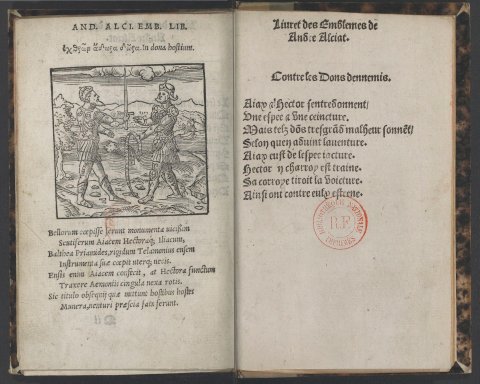 AND. ALCI. EMB. LIB.
ἐχθρῶν ἄδωρα δῶρα. In dona hostium.
Bellorum cœpisse ferunt monumenta vicißim
Scutiferum Aiacem Hectoraq; Iliacum,
Balthea Priamides, rigidum Telamonius ensem
Instrumenta suæ cœpit uterq; necis.
Ensis enim Aiacem confecit, at Hectora functum
Traxere Aemoniis cingula nexa rotis.
Sic titulo obsequij quæ mittunt hostibus hostes
Munera, venturi præscia fata ferunt.
Liuret des Emblemes de
Andre Alciat.
Contre les Dons dennemis.
Aiax & Hector sentredonnent/
Vne espee & vne ceincture.
Mais telz dõs tresgrãd malheur sonnẽt/
Selon quen aduint lauenture.
Aiax eust de lespee
Hector y charroy est traine.
Sa corroye tiroit la voicture.
Ainsi ont contre eulx estrene.
R.F.